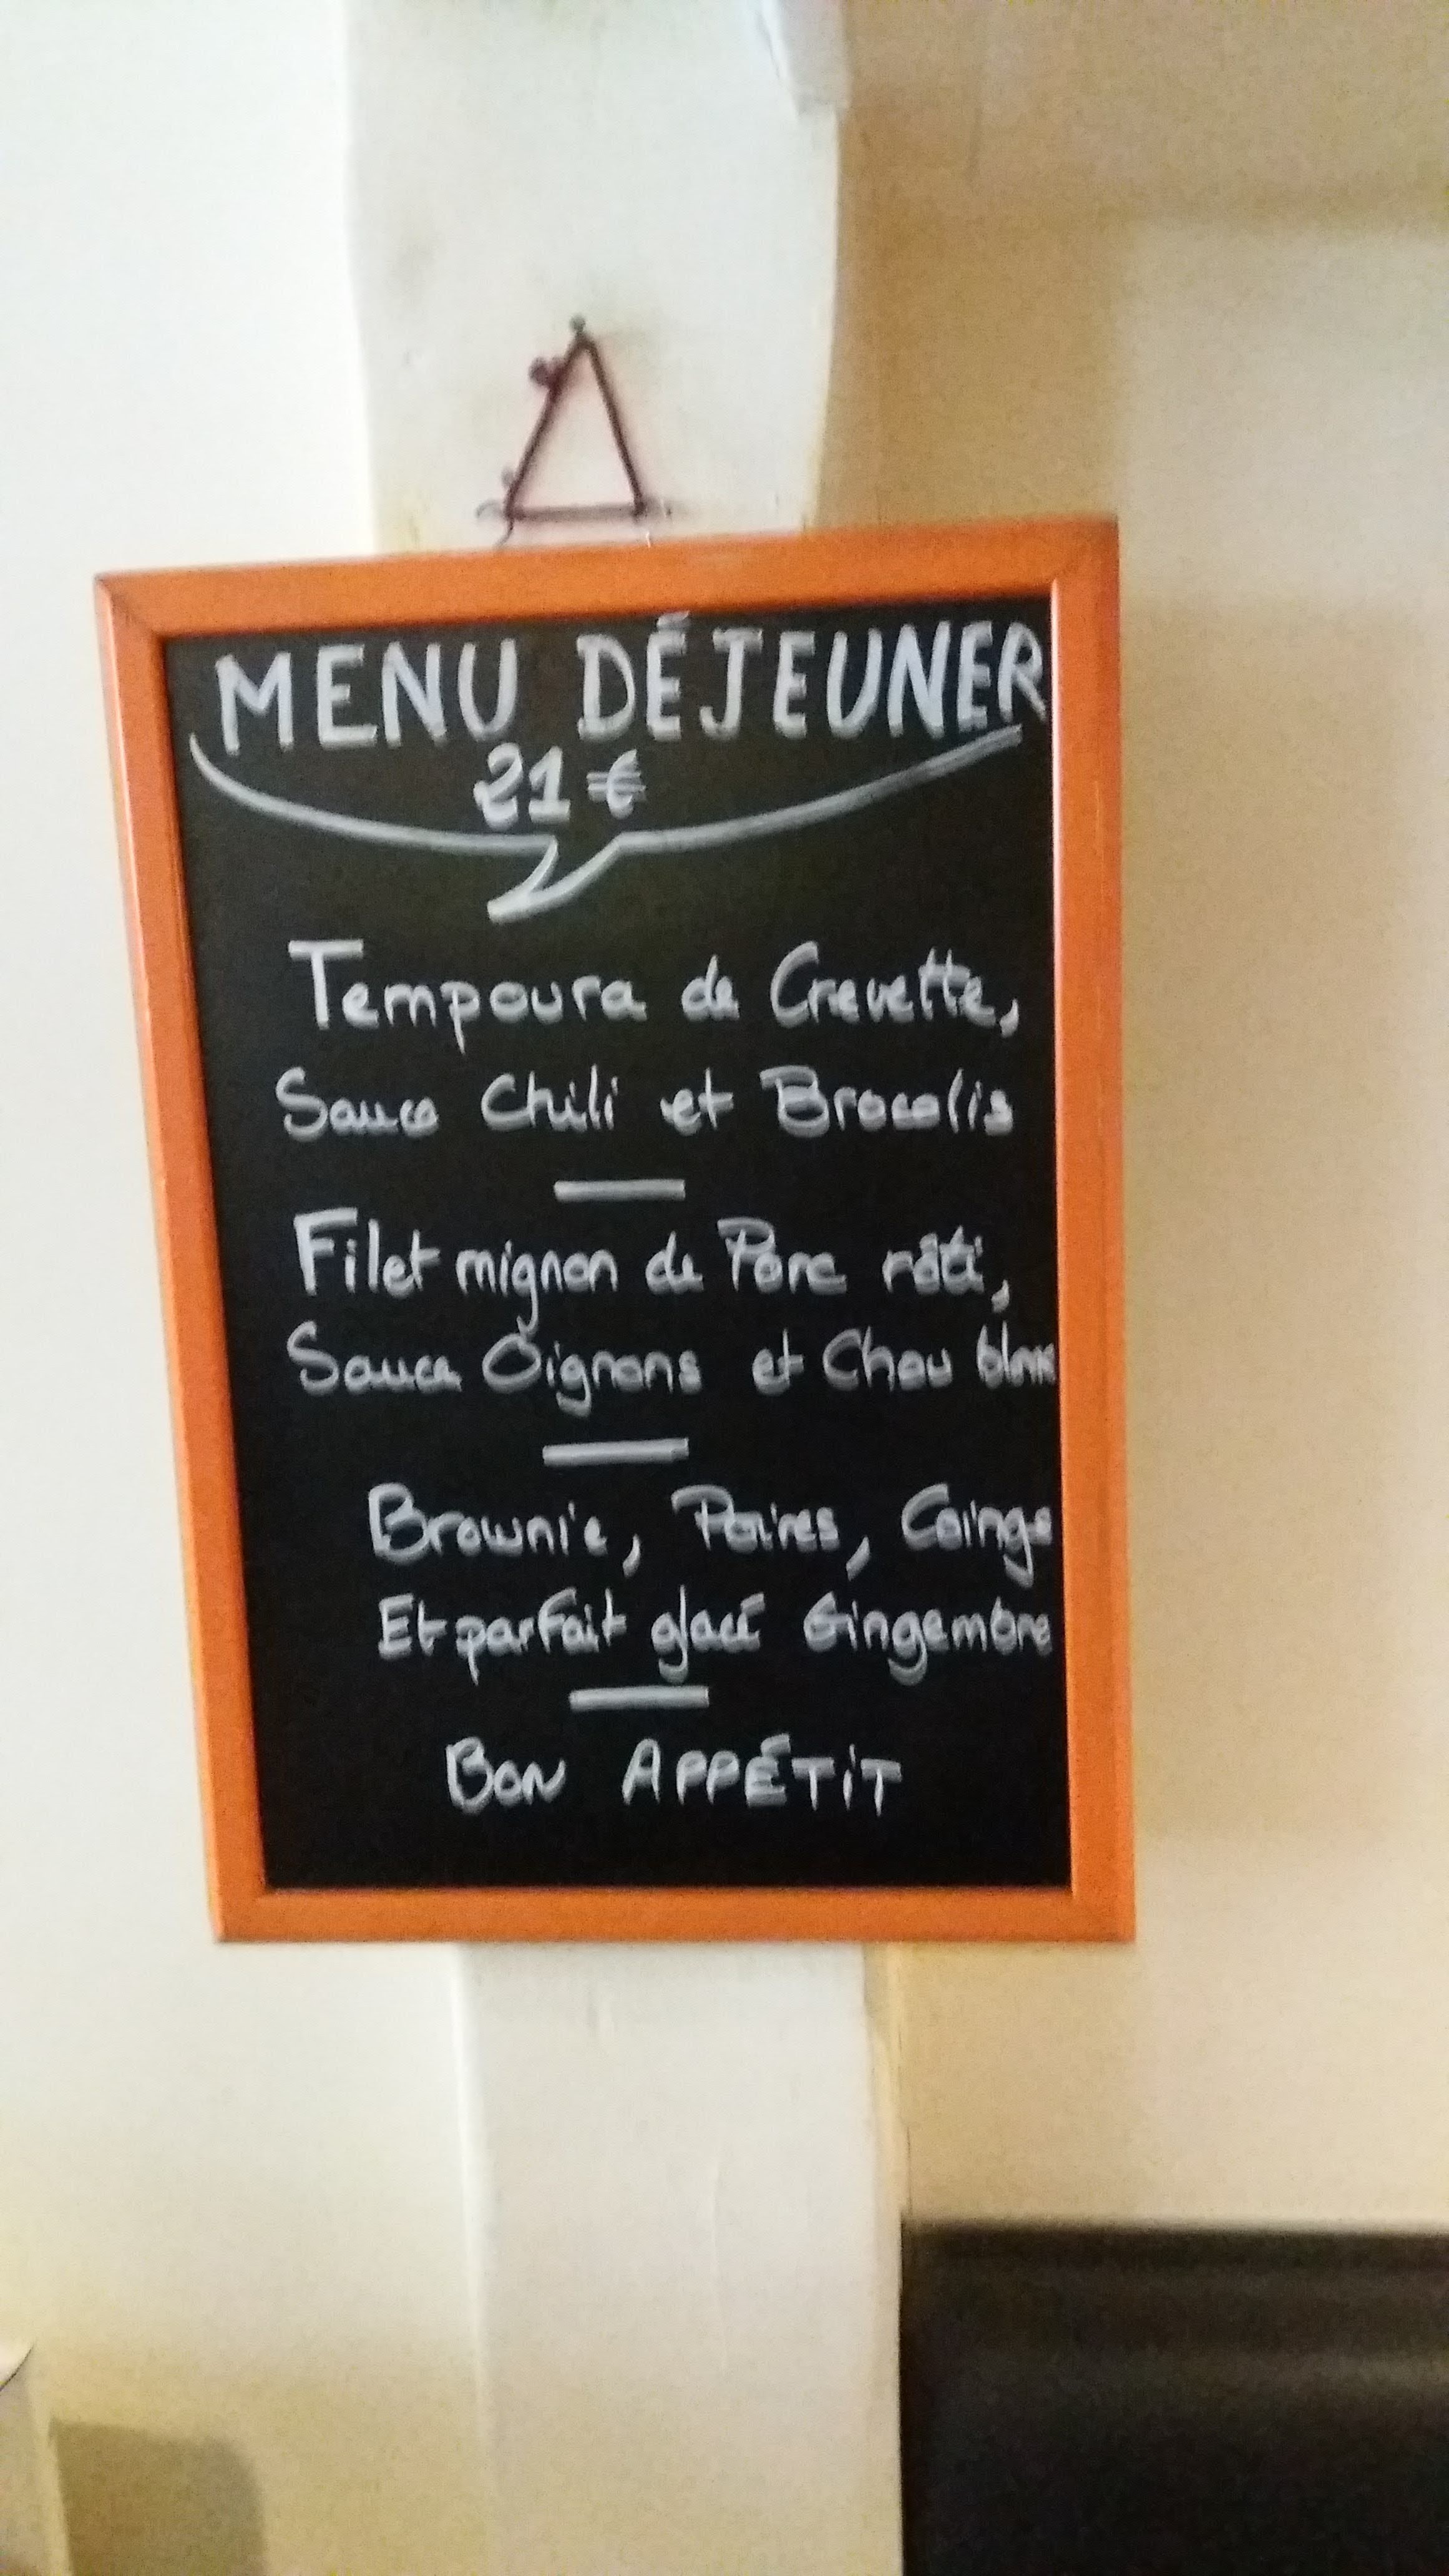 MENU DÉJEUNER
21 €
Tempoura de Crevette,
Sauce Chili et Brocolis
Filet mignon de Porc rôti,
Sauce Oignons et Chou blanc
Brownie, Poires, Coings
Et parfait glacé Gingembre
BON APPÉTIT